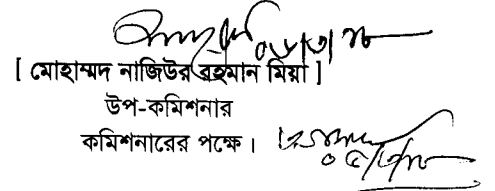 [ মোহাম্মদ নাজিউর রহমান মিয়া ]
উপ-কমিশনার
কমিশনারের পক্ষে।